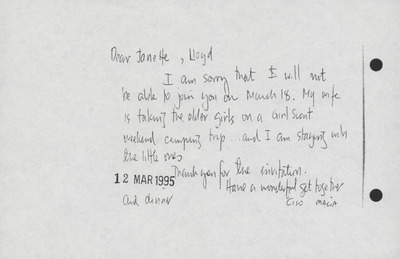 Dear Janette, Lloyd
I am sorry that I will not
be able to join you on March 18. My wife
is taking the older girls on a Girl Scout
weekend camping trip...and I am staying with
the little ones
Thank you for the invitation.
12 MAR 1995
Have a wonderful get together
and dinner